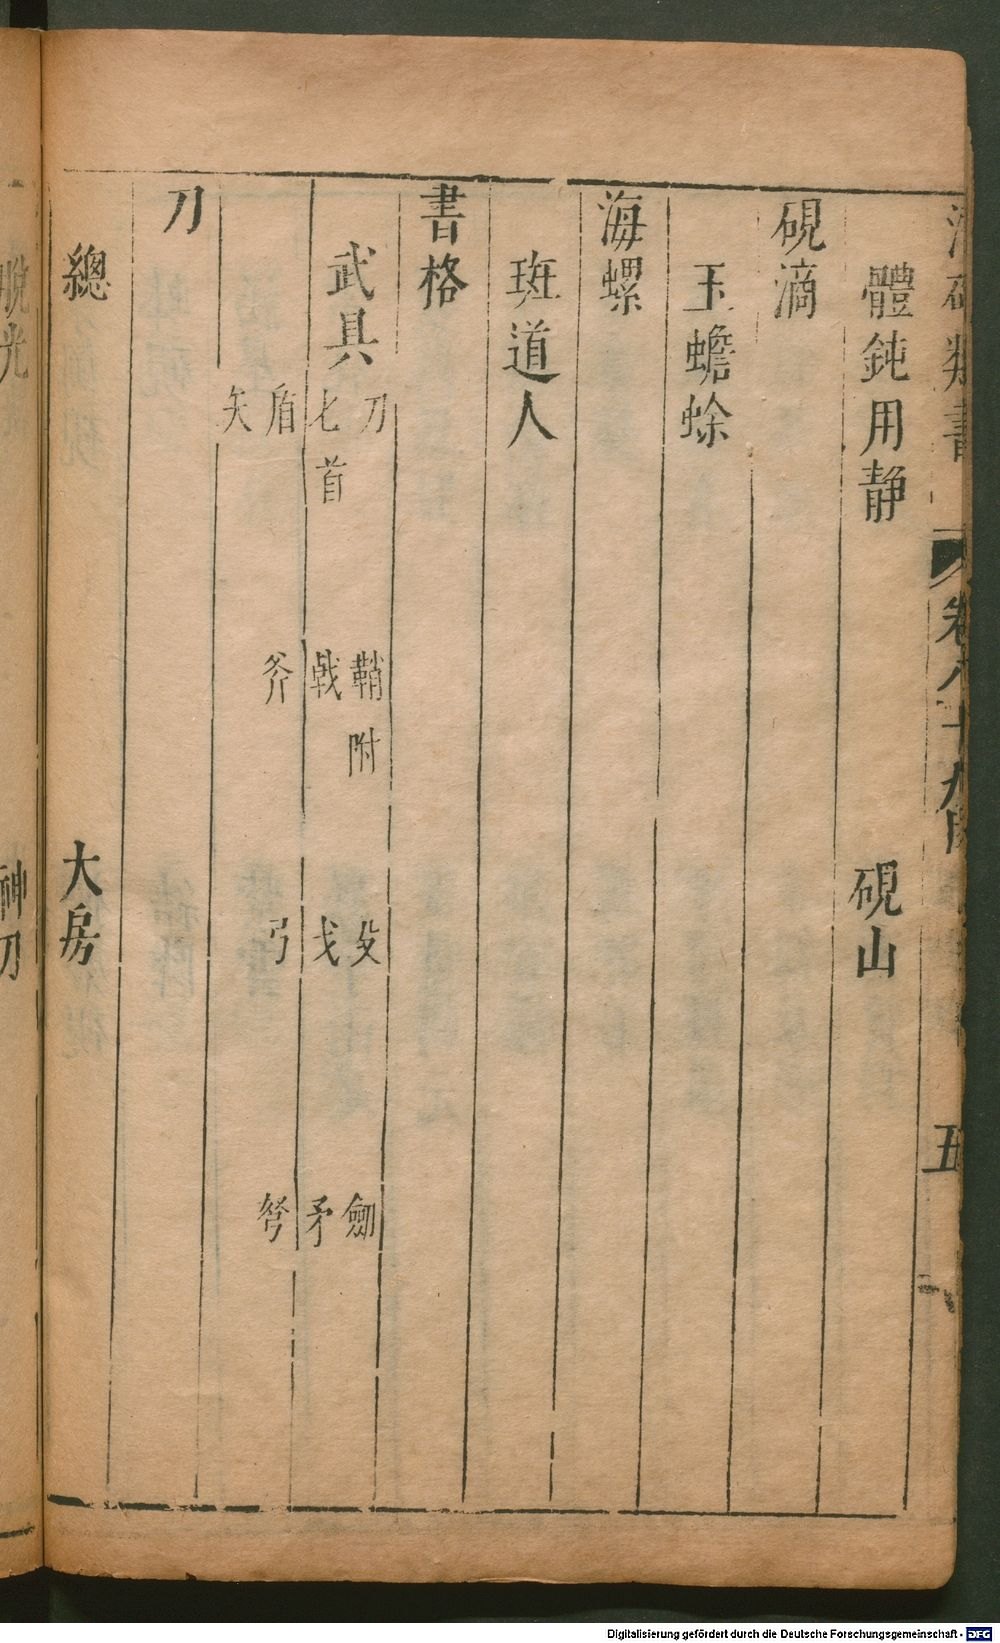 類書
卷八十九
五
體鈍用静　硯山
硯滴
玉蟾蜍
海螺
斑道人
書格
武具　刀　鞘附　殳　劍
匕首　戟　戈　矛
盾　斧　弓　弩
矢
刀
總　大房
脱光　神刀
Digitalisierung gefördert durch die Deutsche Forschungsgemeinschaft - DFG